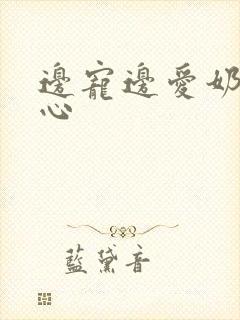 邊寵邊愛奶
心
藍黛音